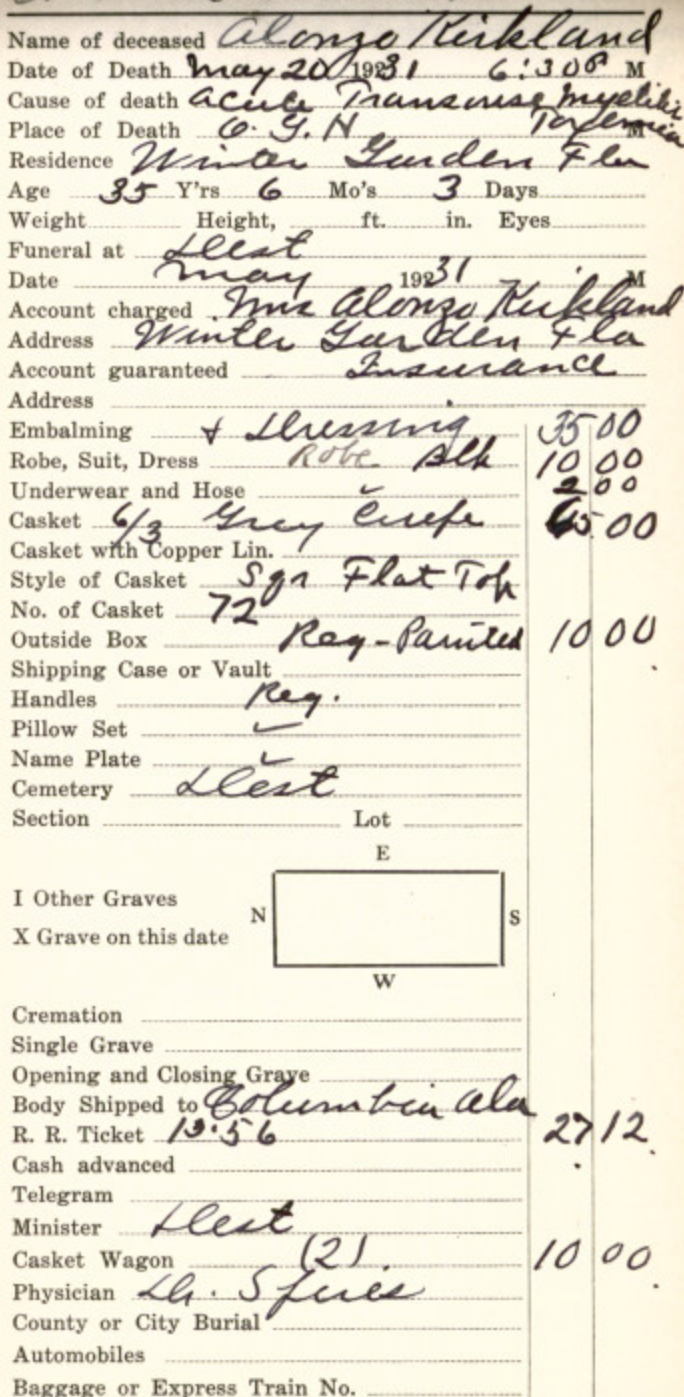 Name of deceased Alonzo Kirkland
Date of Death May 20 1931 6:30 P M
Cause of death Acute Transverse Myelitis
Toxemia
Place of Death O. G. H M
Residence Winter Garden Fla
Age 35 Y'rs 6 Mo's 3 Days
Weight Height, ft. in. Eyes
Funeral at Dest
Date May 1931 M
Account charged Mrs Alonzo Kirkland
Address Winter Garden Fla
Account guaranteed Insurance
Address
Embalming & Dressing 35 00
Robe, Suit, Dress Robe Blk 10 00
Underwear and Hose ✓ 2 00
Casket 6/3 Grey Crepe 65 00
Casket with Copper Lin.
Style of Casket Sqr Flat Top
No. of Casket 72
Outside Box Reg-Painted 10 00
Shipping Case or Vault
Handles Reg.
Pillow Set ✓
Name Plate ✓
Cemetery Dest
Section Lot
E
I Other Graves
N S
X Grave on this date
W
Cremation
Single Grave
Opening and Closing Grave
Body Shipped to Columbia Ala
R. R. Ticket 13.56 27 12
Cash advanced
Telegram
Minister Dest
Casket Wagon (2) 10 00
Physician Dr. Spires
County or City Burial
Automobiles
Baggage or Express Train No.